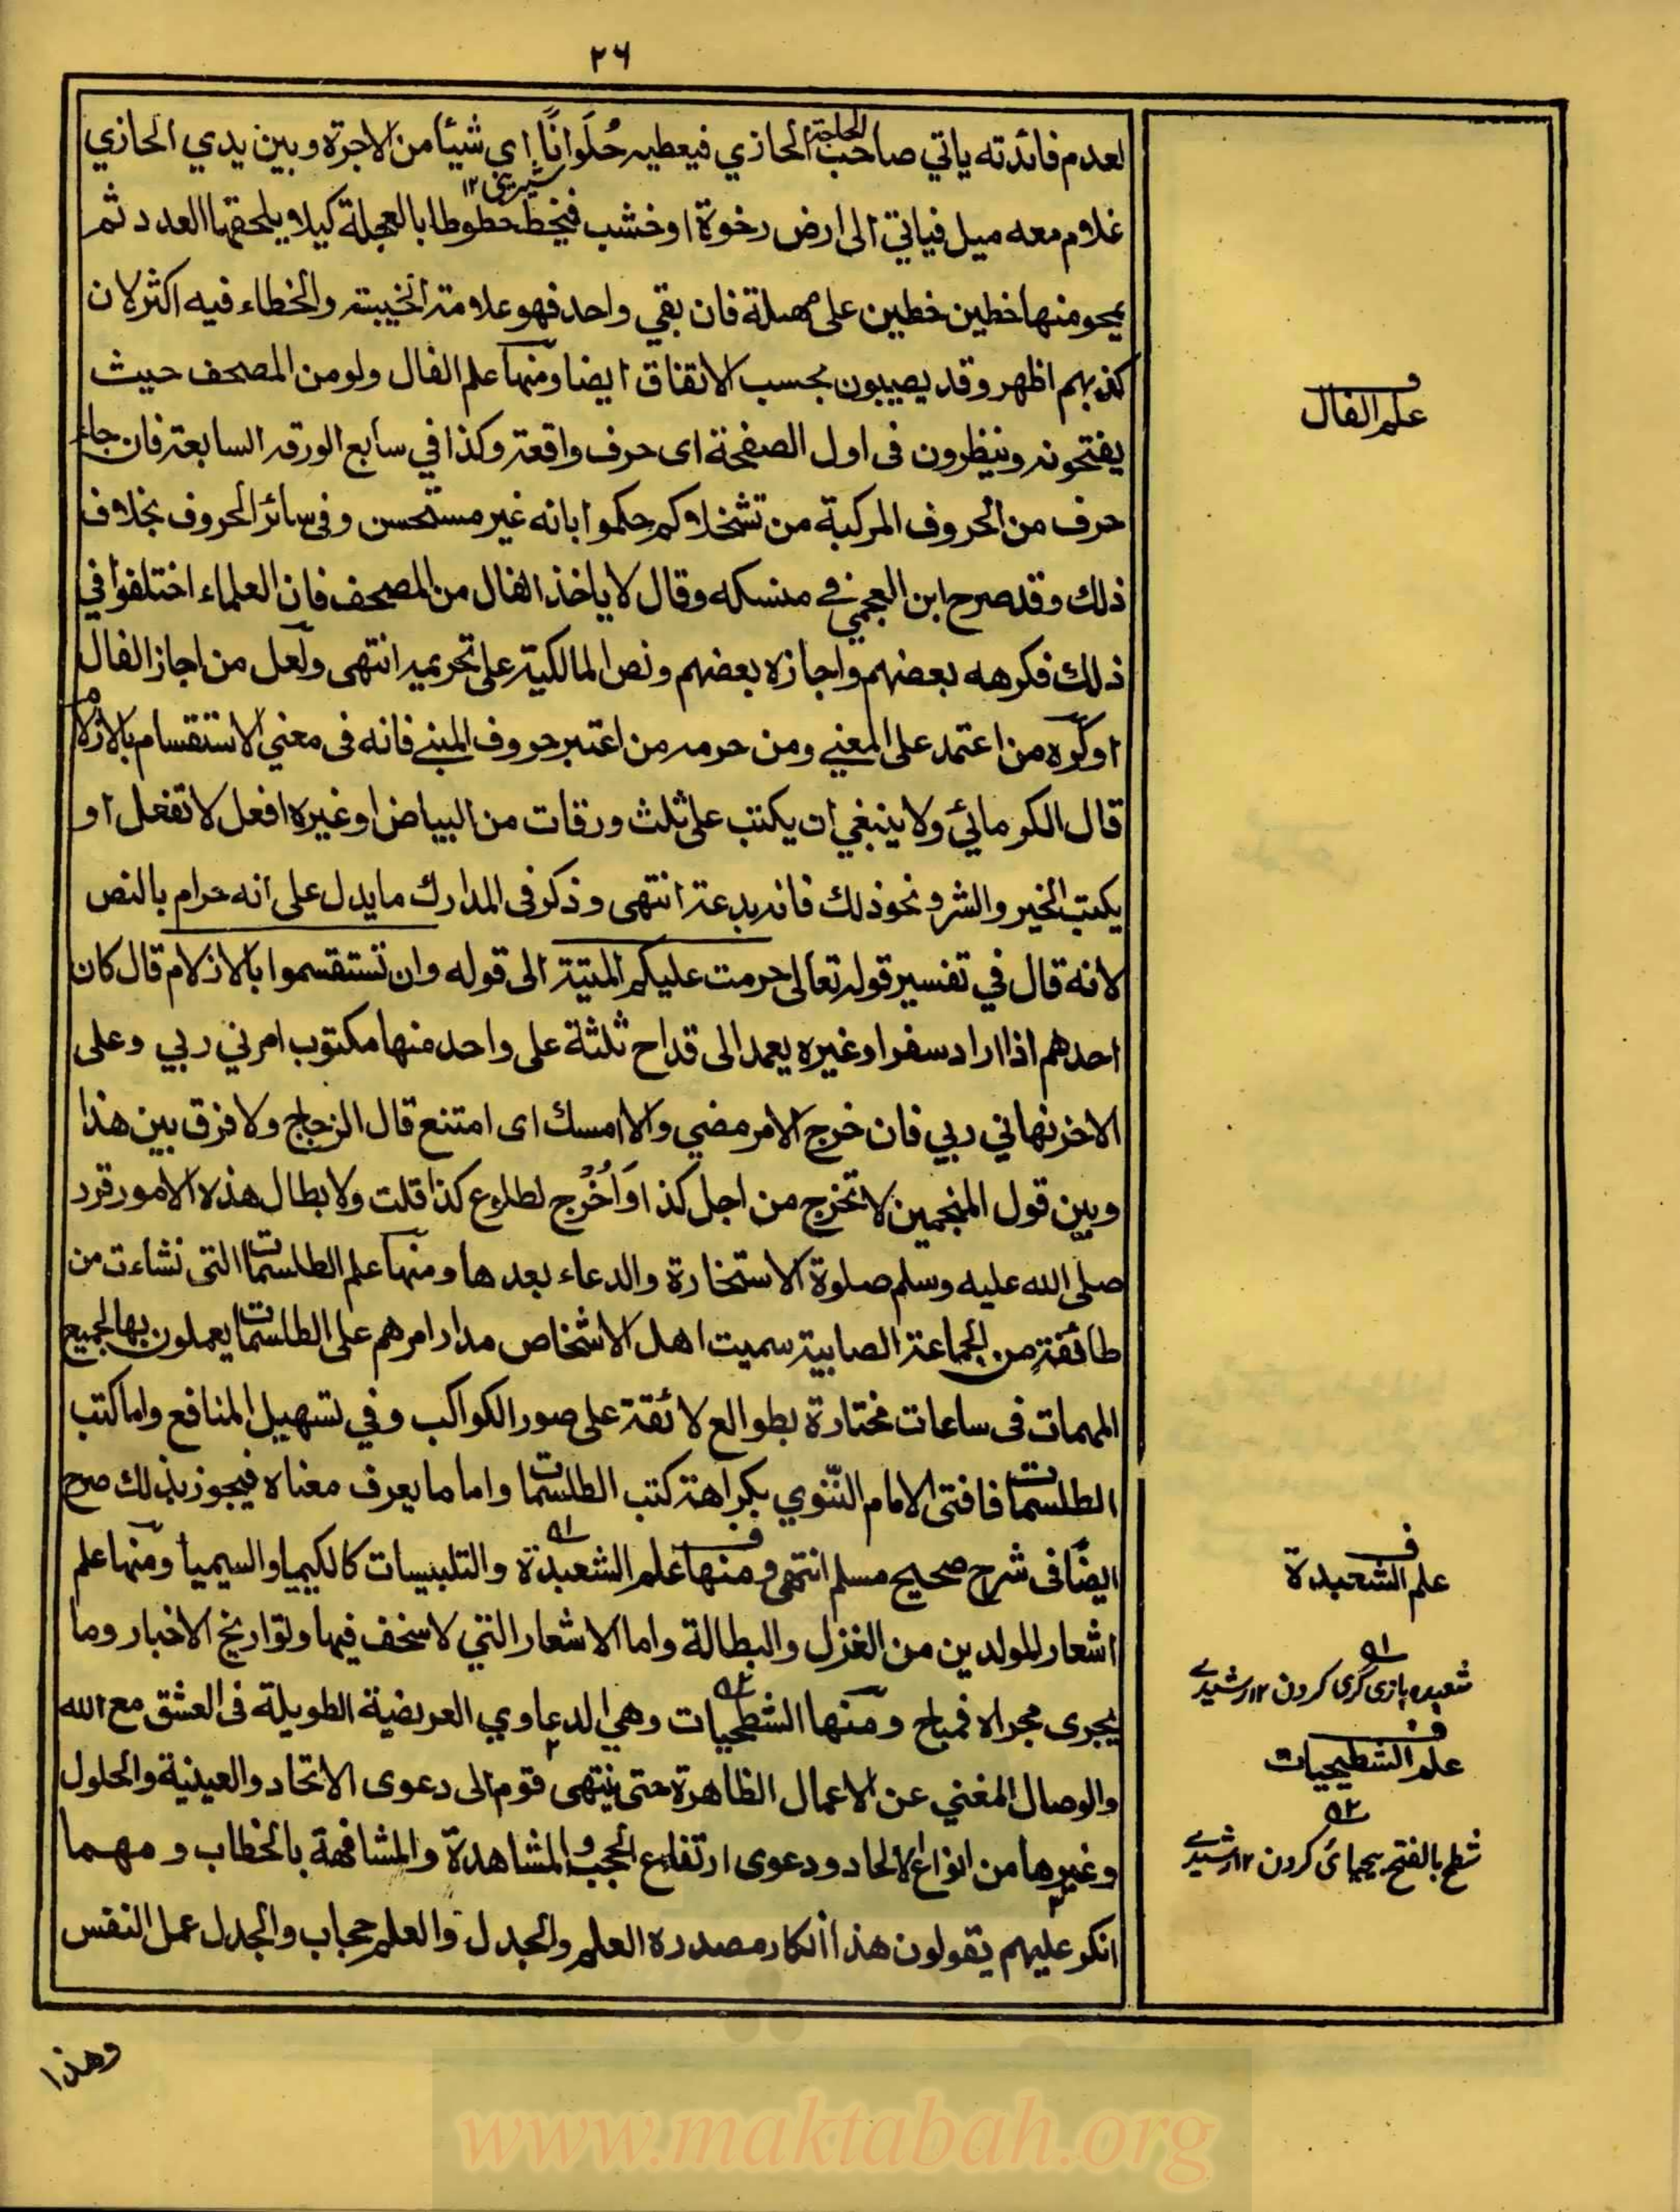 ٢٦
لعدم فائدته ياتي صاحب الحاجة الحازي فيعطيه حُلَوانًا اي شيئا من الاجرة وبين يدي الحازي
شيريني ١٢
غلام معه ميل فياتي الى ارض رخوة او خشب فيخط خطوطا بالعجلة كيلا يلحقها العدد ثم
يمحو منها خطين خطين على مهلة فان بقي واحد فهو علامة الخيبة والخطاء فيه اكثر لان
كذبهم اظهر وقد يصيبون بحسب الاتفاق ايضا ومنها علم الفال ولو من المصحف حيث
يفتحونه وينظرون فى اول الصفحة اى حرف واقعة وكذا في سابع الورقه السابعة فان جاء
حرف من الحروف المركبة من تشخلاوكم حكموا بانه غير مستحسن وفى سائر الحروف بخلاف
ذلك وقد صرح ابن العجمي في منسكه وقال لا ياخذ الفال من المصحف فان العلماء اختلفوا في
ذلك فكرهه بعضهم واجازه بعضهم ونص المالكية على تحريمه انتهى ولعل من اجاز الفال
او كره من اعتمد على المعني ومن حرمه من اعتبر حروف المبنى فانه فى معني الاستقسام بالازلام
قال الكرماني ولا ينبغي ان يكتب على ثلث ورقات من البياض او غيره افعل لا تفعل او
يكتب الخير والشر ونحو ذلك فانه بدعة انتهى وذكر فى المدارك ما يدل على انه حرام بالنص
لانه قال في تفسير قوله تعالى حرمت عليكم الميتة الى قوله وان تستقسموا بالازلام قال كان
احدهم اذا اراد سفرا وغيره يعمد الى قداح ثلثة على واحد منها مكتوب امرني ربي وعلى
الاخر نهاني ربي فان خرج الامر مضي والا امسك اى امتنع قال الزجاج ولا فرق بين هذا
وبين قول المنجمين لا تخرج من اجل كذا اوَ اُخْرُج لطلوع كذا قلت ولابطال هذه الامور قرر
صلى الله عليه وسلم صلوة الاستخارة والدعاء بعدها ومنها علم الطلسمات التى نشاءت من
طائفةٍ من الجماعة الصابية سميت اهل الاشخاص مدار امرهم على الطلسمات يعملون بها لجميع
المهمات فى ساعات مختارة بطوالع لائقة على صور الكواكب وفي تسهيل المنافع واما كتب
الطلسمات فافتى الامام النّووي بكراهة كتب الطلسمات واما ما يعرف معناه فيجوز بذلك صرح
ايضًا فى شرح صحيح مسلم انتهى ومنها علم الشعبدة والتلبيسات كالكيميا والسيميا ومنها علم
اشعار المولدين من الغزل والبطالة واما الاشعار التي لا سخف فيها وتواريخ الاخبار وما
يجرى مجراه فمباح ومنها الشطحيات وهي الدعاوي العريضية الطويلة فى العشق مع الله
والوصال المغني عن الاعمال الظاهرة حتى ينتهى قوم الى دعوى الاتحاد والعينية والحلول
وغيرها من انواع الالحاد ودعوى ارتفاع الحجب والمشاهدة والمشافهة بالخطاب ومهما
انكر عليهم يقولون هذا انكار مصدره العلم والجدل والعلم حجاب والجدل عمل النفس
وهذا
ف
علم الفال
ف
علم الشعبدة
٥١
شعبده بازى گرى كردن ١٢ رشيدى
ف
علم الشطحيات
٥٢
شطح بالفتح بيحيائ كردن ١٢ رشيدى
www.maktabah.org